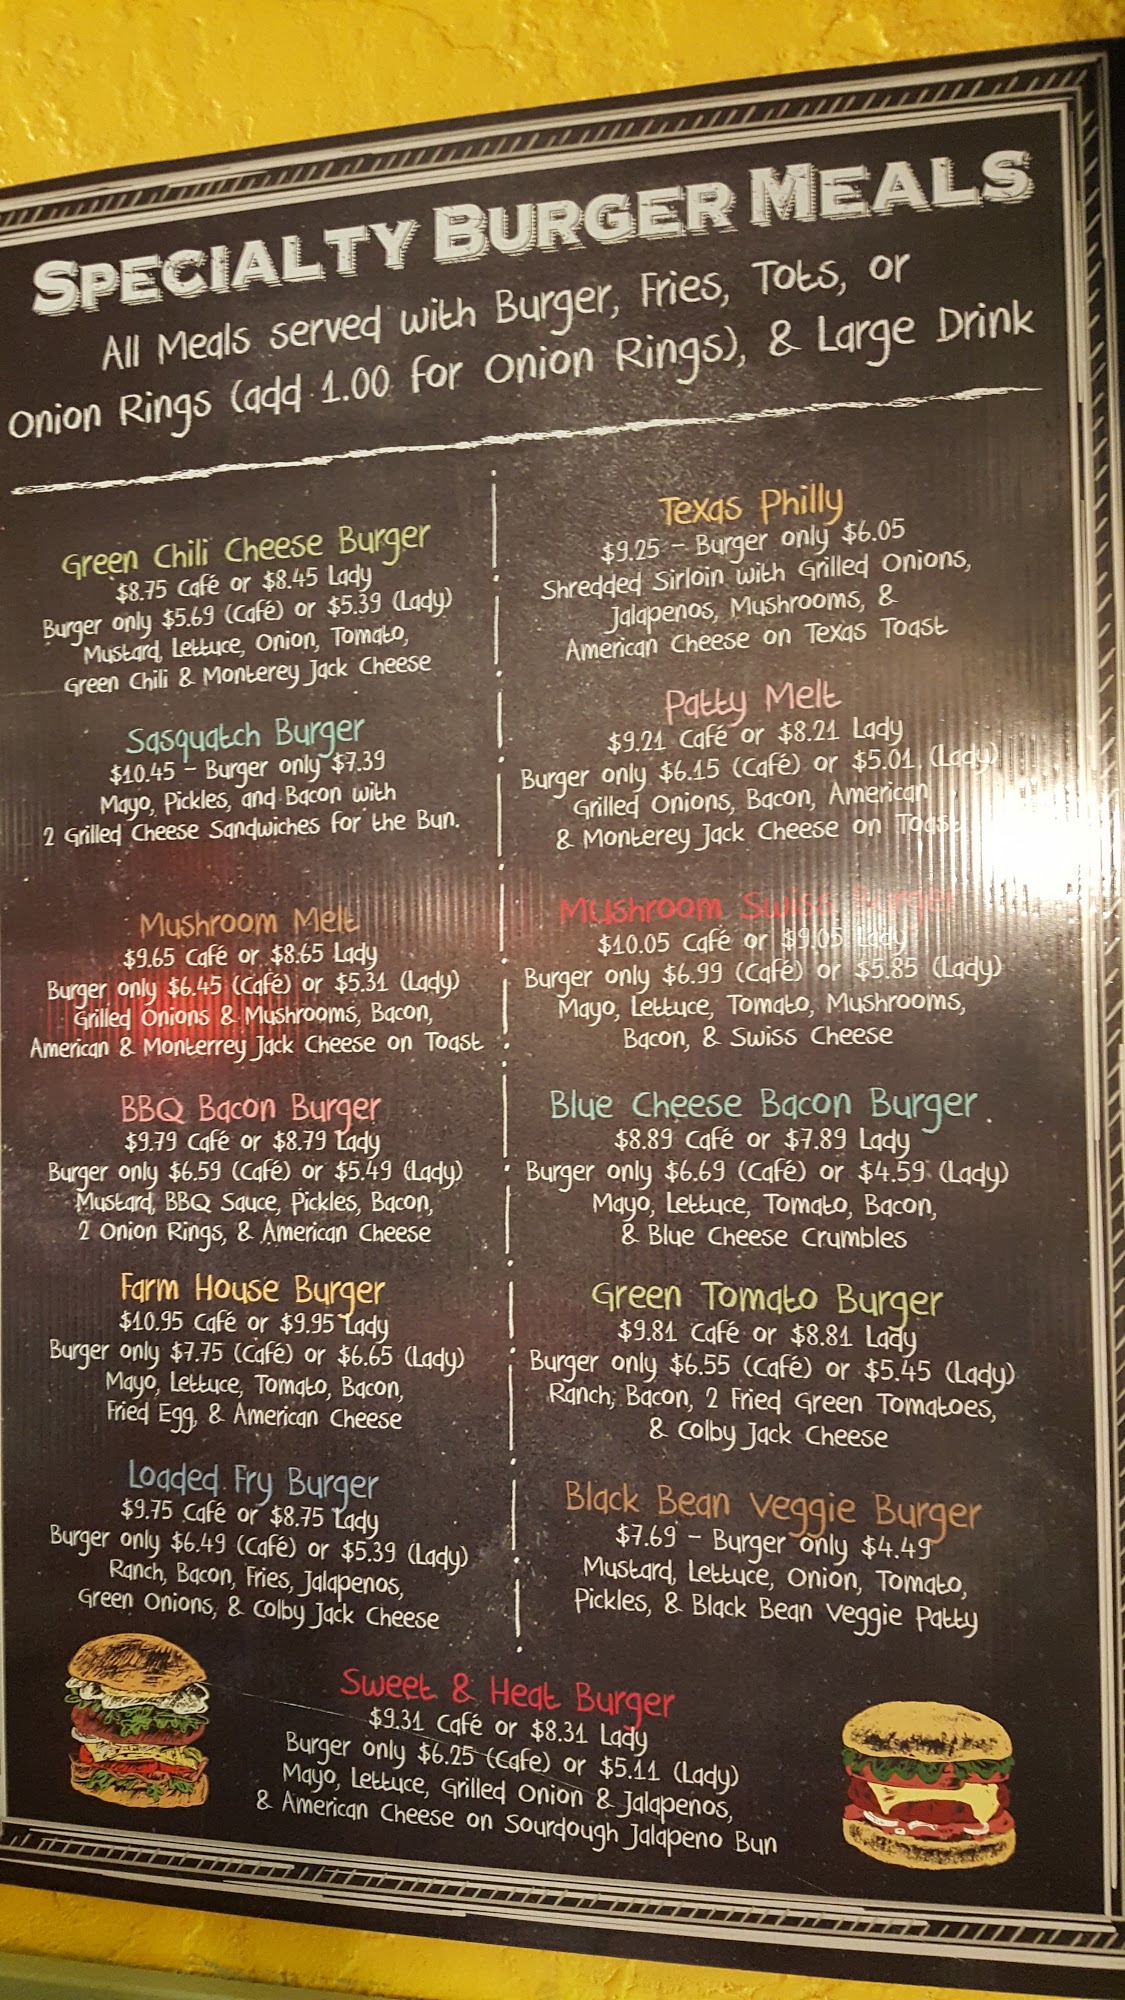 SPECIALTY BURGER MEALS
All Meals served with Burger, Fries, Tots, or
Onion Rings (add 1.00 for Onion Rings), & Large Drink
Green Chili Cheese Burger
$8.75 Café or $8.45 Lady
Burger only $5.69 (Café) or $5.39 (Lady)
Mustard, Lettuce, Onion, Tomato,
Green Chili & Monterey Jack Cheese
Sasquatch Burger
$10.45 - Burger only $7.39
Mayo, Pickles, and Bacon with
2 Grilled Cheese Sandwiches for the Bun.
Mushroom Melt
$9.65 Café or $8.65 Lady
Burger only $6.45 (Café) or $5.31 (Lady)
Grilled Onions & Mushrooms, Bacon,
American & Monterrey Jack Cheese on Toast
BBQ Bacon Burger
$9.79 Café or $8.79 Lady
Burger only $6.59 (Café) or $5.49 (Lady)
Mustard, BBQ Sauce, Pickles, Bacon,
2 Onion Rings, & American Cheese
Farm House Burger
$10.95 Café or $9.95 Lady
Burger only $7.75 (Café) or $6.65 (Lady)
Mayo, Lettuce, Tomato, Bacon,
Fried Egg, & American Cheese
Loaded Fry Burger
$9.75 Café or $8.75 Lady
Burger only $6.49 (Café) or $5.39 (Lady)
Ranch, Bacon, Fries, Jalapenos,
Green Onions, & Colby Jack Cheese
Texas Philly
$9.25 - Burger only $6.05
Shredded Sirloin with Grilled Onions,
Jalapenos, Mushrooms, &
American Cheese on Texas Toast
Patty Melt
$9.21 Café or $8.21 Lady
Burger only $6.15 (Café) or $5.01 (Lady)
Grilled Onions, Bacon, American
& Monterey Jack Cheese on Toast
Mushroom Swiss Burger
$10.05 Café or $9.05 Lady
Burger only $6.99 (Café) or $5.85 (Lady)
Mayo, Lettuce, Tomato, Mushrooms,
Bacon, & Swiss Cheese
Blue Cheese Bacon Burger
$8.89 Café or $7.89 Lady
Burger only $6.69 (Café) or $4.59 (Lady)
Mayo, Lettuce, Tomato, Bacon,
& Blue Cheese Crumbles
Green Tomato Burger
$9.81 Café or $8.81 Lady
Burger only $6.55 (Café) or $5.45 (Lady)
Ranch, Bacon, 2 Fried Green Tomatoes,
& Colby Jack Cheese
Black Bean Veggie Burger
$7.69 - Burger only $4.49
Mustard, Lettuce, Onion, Tomato,
Pickles, & Black Bean Veggie Patty
Sweet & Heat Burger
$9.31 Café or $8.31 Lady
Burger only $6.25 (Cafe) or $5.11 (Lady)
Mayo, Lettuce, Grilled Onion & Jalapenos,
& American Cheese on Sourdough Jalapeno Bun